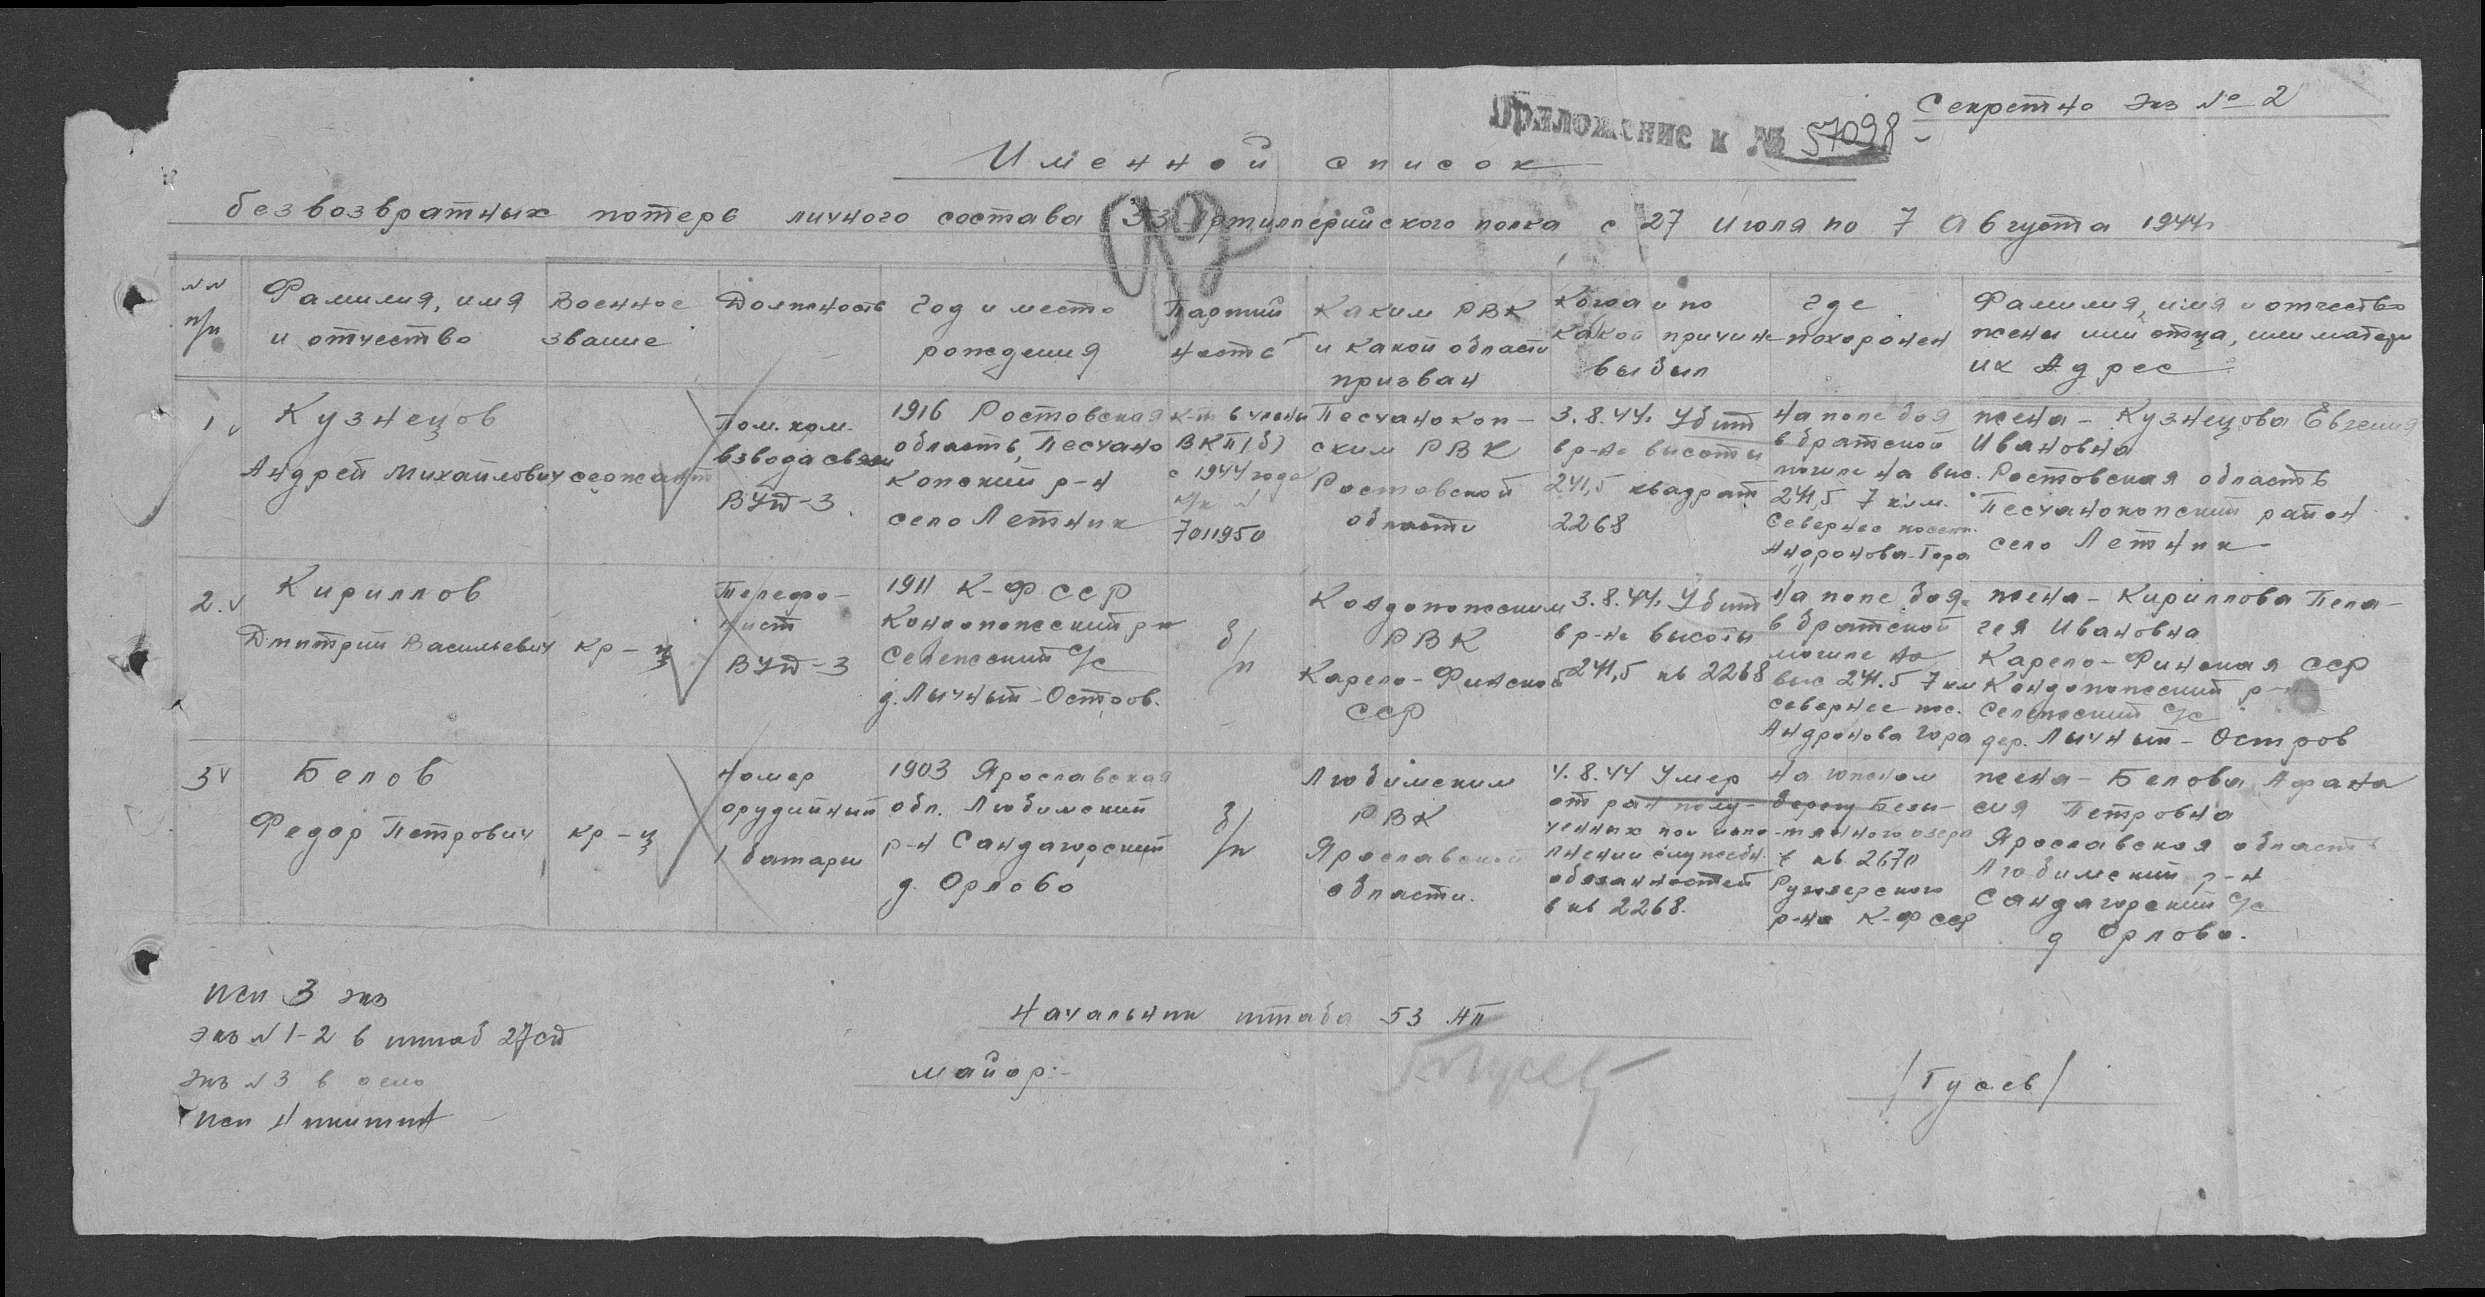 Секретно Экз № 2
Приложение к № 57098
Именной список
безвозвратных потерь личного состава 53 Артиллерийского полка с 27 Июля по 7 Августа 1944г
92
№№ п/п
Фамилия, имя и отчество
Военное звание
Должность
Год и место рождения
Партийность
Каким РВК и какой области призван
Когда и по какой причине выбыл
Где похоронен
Фамилия, имя и отчество жены или отца, или матери их Адрес
1
Кузнецов
Андрей Михайлович
сержант
Пом. ком.
взвода связи
ВУС-3
1916 Ростовская
область, Песчано
копский р-н
село Летник
к-т в члены
ВКП(б)
с 1944 года
к/к №
7011950
Песчанокоп-
ским РВК
Ростовской
области
3.8.44. Убит
в р-не высоты
241,5 квадрат
2268
На поле боя
в братской
могиле на выс.
241,5 7 к.м.
Севернее
Андронова-Гора
жена - Кузнецова Евгения
Ивановна
Ростовская область
Песчанокопский район
село Летник
2.
Кириллов
Дмитрий Васильевич
кр-ц
Телефо-
нист
ВУС-3
1911 К-ФССР
Кондопожский р-н
Селецкий с/с
д. Лычный-Остров.
б/п
Кондопожским
РВК
Карело-Финской
ССР
3.8.44. Убит
в р-не высоты
241,5 кв 2268
На поле боя.
в братской
могиле на
выс 241.5 7 км
севернее
Андронова Гора
жена - Кириллова Пела-
гея Ивановна
Карело-Финская ССР
Кондопожский р-н
Селецкий с/с
дер. Лычный-Остров
3
Белов
Федор Петрович
кр-ц
Номер
орудийный
1 батареи
1903 Ярославская
обл. Любимский
р-н Сандагорский
д. Орлово
б/п
Любимским
РВК
Ярославской
области.
4.8.44 Умер
от ран полу-
ченных при испо-
лнении служебн.
обязанностей
в кв 2268.
На южном
берегу Безы-
мянного озера
в кв 2670
Ругозерского
р-на К-ФССР
жена - Белова Афана
сия Петровна
Ярославская область
Любимский р-н
Сандагорский с/с
д Орлово.
исп 3 экз
экз №1-2 в штаб 27сд
экз №3 в дело
исп Никитин
Начальник штаба 53 АП
майор:-
Гусев
/Гусев/